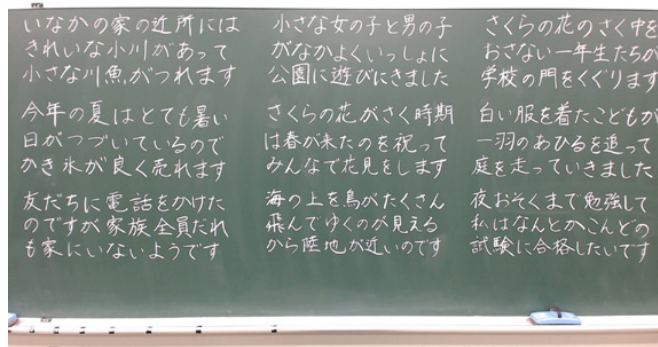 いなかの家の近所には
きれいな小川があって
小さな川魚がつれます
今年の夏はとても暑い
日がつづいているので
かき氷が良く売れます
友だちに電話をかけた
のですが家族全員だれ
も家にいないようです
小さな女の子と男の子
がなかよくいっしょに
公園に遊びにきました
さくらの花がさく時期
は春が来たのを祝って
みんなで花見をします
海の上を鳥がたくさん
飛んでゆくのが見える
から陸地が近いのです
さくらの花のさく中を
おさない一年生たちが
学校の門をくぐります
白い服を着たこどもが
一羽のあひるを追って
庭を走っていきました
夜おそくまで勉強して
私はなんとかこんどの
試験に合格したいです